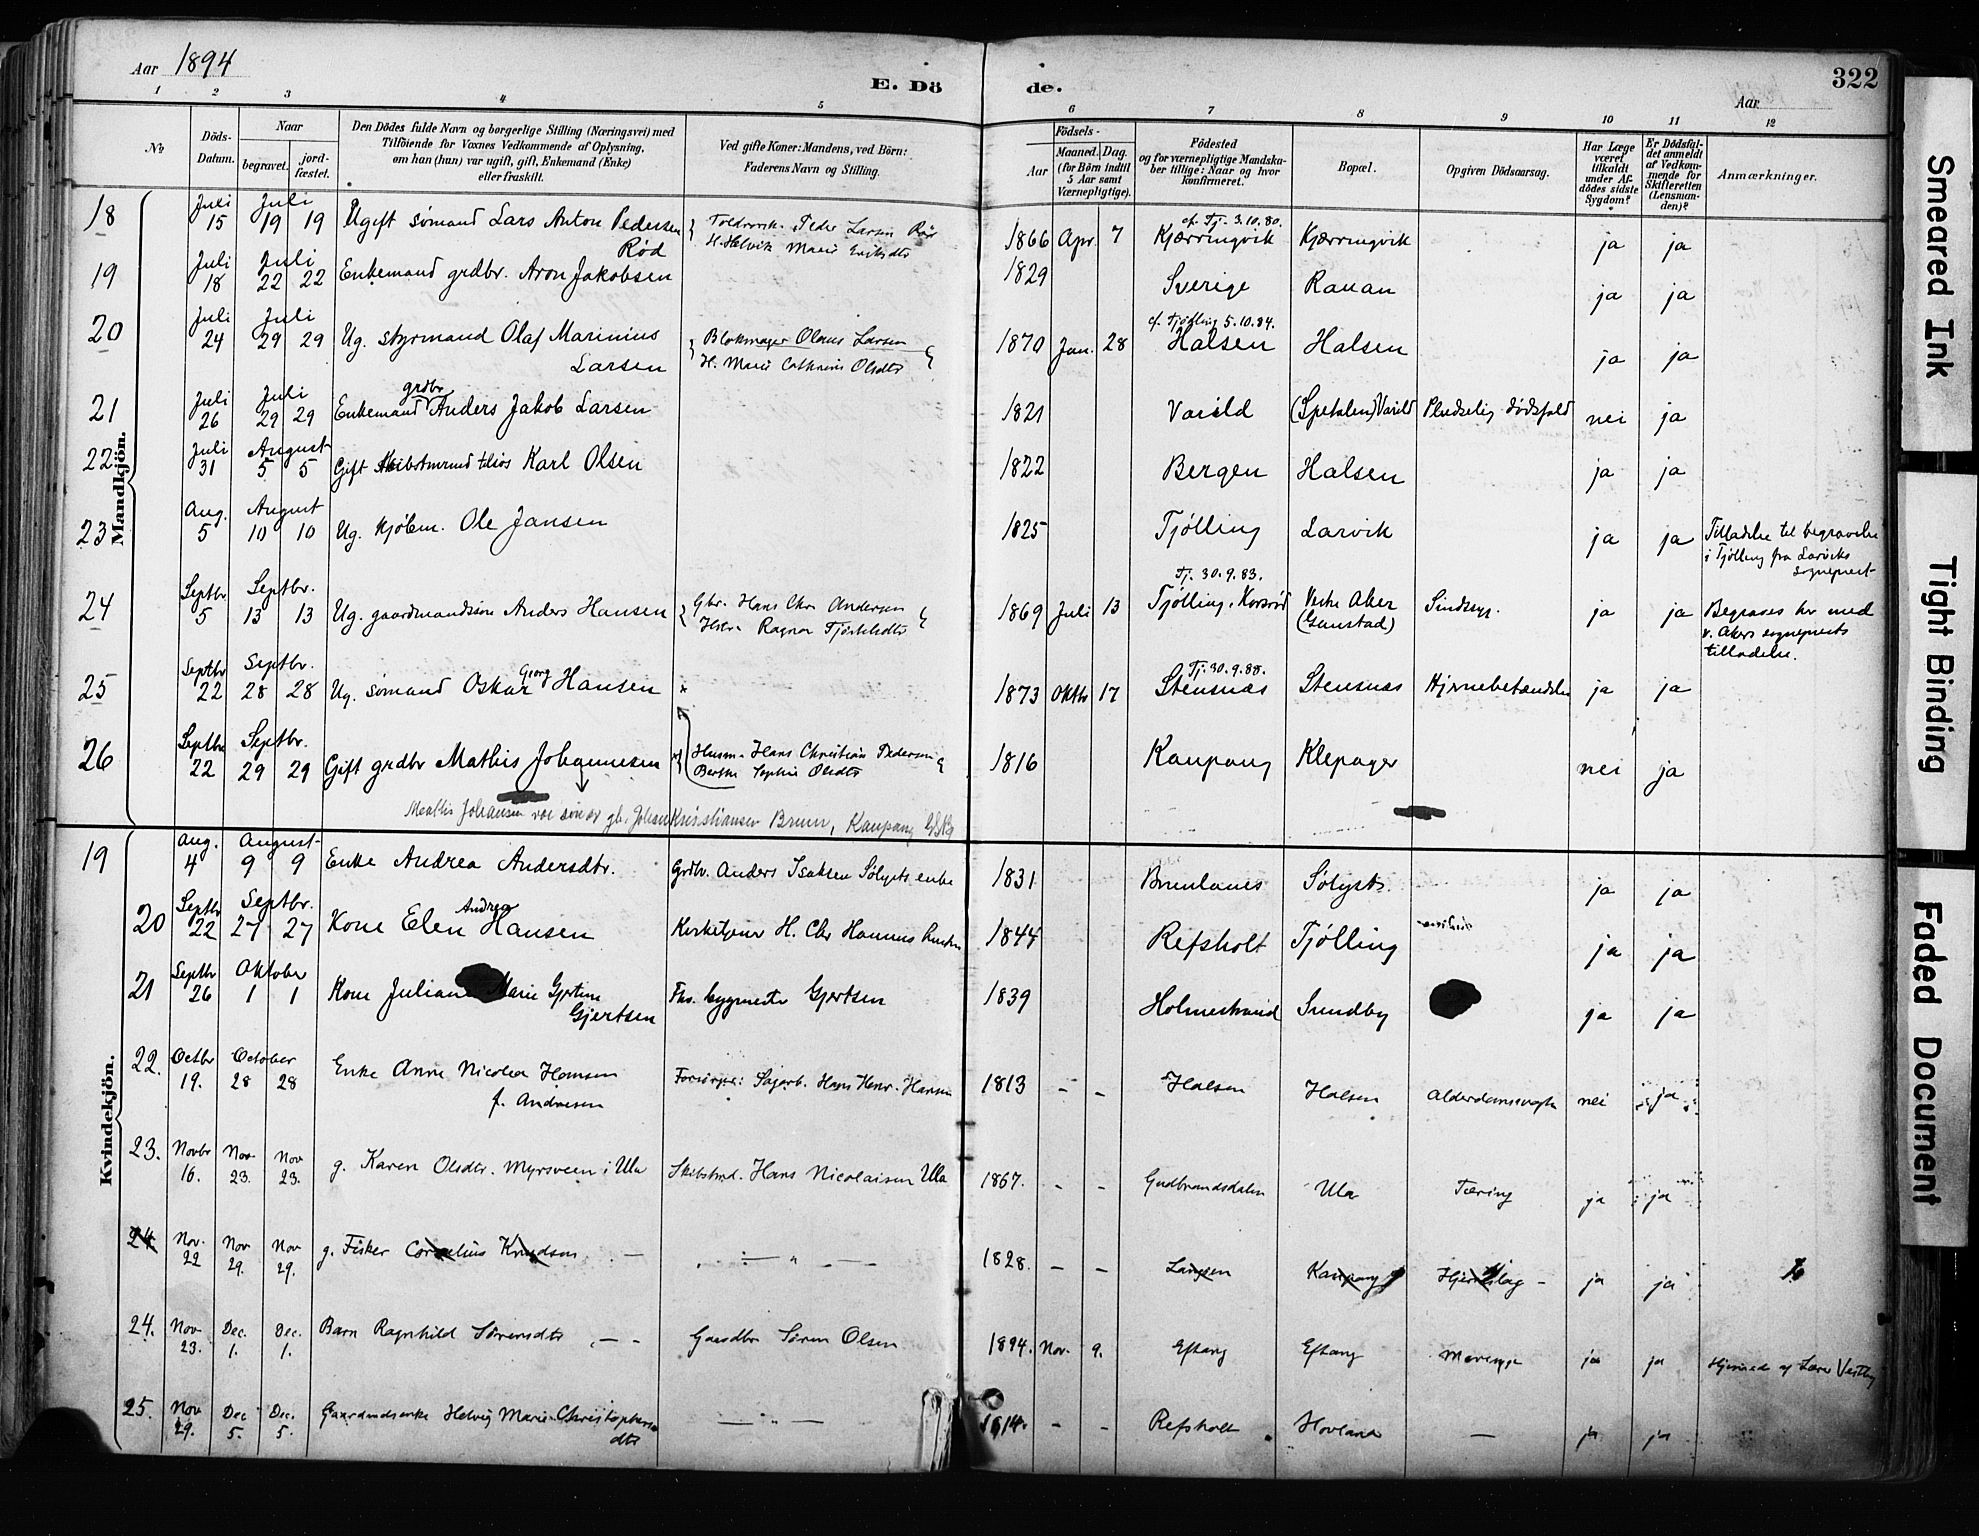 Aar 1894
E. Dö de.
322
Aar
1 2 3 4 5 6 7 8 9 10 11 12
No
Döds-Datum.
Naar
begravet.
jord-fæstet.
Den Dödes fulde Navn og borgerlige Stilling (Næringsvei) med
Tilföiende for Voxnes Vedkommende af Oplysning,
om han (hun) var ugift, gift, Enkemand (Enke)
eller fraskilt.
Ved gifte Koner: Mandens, ved Börn:
Faderens Navn og Stilling.
Födsels-
Aar
Maaned.
Dag.
(for Börn indtil
5 Aar samt
Værnepligtige).
Födested
og for værnepligtige Mandska-
ber tillige: Naar og hvor
konfirmeret.
Bopæl.
Opgiven Dödsaarsag.
Har Læge
været
tilkaldt
under Af-
dödes sidste
Sygdom?
Er Dödsfal-
det anmeldt
af Vedkom-
mende for
Skifteretten
(Lensman-
den)?
Anmærkninger.
Mandkjön.
18 Juli 15 Juli 19 19 Ugift sømand Lars Anton Pedersen Rød
Peder Larsen Rød
H. Helvik Marie Eriksdtr
1866 Apr. 7 cf. Tj. 3.10.80. Kjærringvik Kjærringvik ja ja
19 Juli 18 Juli 22 22 Enkemand grdbr. Aron Jakobsen 1829 Sverige Rauan ja ja
20 Juli 24 Juli 29 29 Ug. styrmand Olaf Marinius Larsen
Blokmager Olaus Larsen
H. Marie Cathrine Olsdtr
1870 Jan. 28 cf. Tjølling 5.10.84. Halsen Halsen ja ja
21 Juli 26 Juli 29 29 Enkemand grdbr Anders Jakob Larsen 1821 Varild (Spetalen) Varild Pludselig dødsfald nei ja
22 Juli 31 August 5 5 Gift Karl Olsen 1822 Bergen Halsen ja ja
23 Aug. 5 August 10 10 Ug. kjøbm. Ole Jansen 1825 Tjølling Larvik ja ja Tilladelse til begravelse
i Tjølling fra Larviks
sogneprest
24 Septbr. 5 Septbr. 13 13 Ug. gaardmandssøn Anders Hansen
Gbr. Hans Chr Andersen
Ragna
1869 Juli 13 Tj. 30.9.83. Tjølling, Vestre Aker (Gaustad) Sindssyg. ja ja Begraves her med
v. Akers sogneprests
tilladelse.
25 Septbr 22 Septbr. 28 28 Ug. sømand Oskar Georg Hansen x 1873 Oktbr 17 Tj. 30.9.88. Stensnæs Stensnæs Hjernebetændelse ja ja
26 Septbr 22 Septbr. 29 29 Gift grdbr Mathis Johannesen
x Husm. Hans Christian Pedersen
Berthe Sophie Olsdtr
1816 Kaupang Klepager nei ja
Mathis Johansen var søn av gb. Johan Kristiansen Brunn, Kaupang
Kvindekjön.
19 Aug. 4 August 9 9 Enke Andrea Andersdtr. Grdbr. Anders Isaksen Sølysts enke 1831 Brunlanes Sølyst ja ja
20 Septbr 22 Septbr. 27 27 Kone Elen Andrea Hansen Kirketjener H. Chr Hansens 1844 Refsholt Tjølling ja ja
21 Septbr 26 Oktober 1 1 Kone Juliane Marie Gjertsen
Gjertsen
Fhv. bygmester Gjertsen 1839 Holmestrand Sundby ja ja
22. Octbr 19. October 28 28 Enke Anne Nicolea Hansen
f. Andersen
Forsørger: Sagarb. Hans Henr. Hansen 1813 - - Halsen Halsen Alderdomssvagh nei ja
23. Novbr 16. Nov 23. Nov 23. g. Karen Olsdtr. Myrsveen i Ula Skibstmd. Hans Nicolaisen Ula 1867. - - Gudbrandsdalen Ula Tæring ja ja
24. Nov. 22 Nov 29. Nov 29. g. Fisker Cornelius Knudsen — — " — 1828. - - Langen Kaupang Hjerneslag - ja ja
24. Nov 23. Dec. 1. Dec. 1. Barn Ragnhild Sørensdtr — — Gaardbr Søren Olsen 1894. Nov. 9. Eftang Eftang ja ja Hjemmed. af Lærer Vestby
25. Nov 29. Dec 5. Dec. 5. Gaardmdsenke Helvig Marie Christophersdtr — " — 1814. - - Refsholt Hovland — ja ja
Smeared Ink
Tight Binding
Faded Document